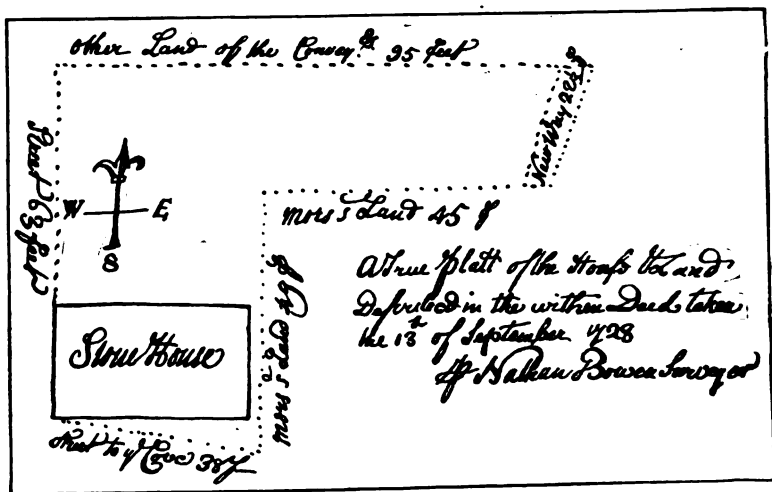 other Land of the Convey.rs 95 feet
Street 63 feet
New Way 22½ f
W E
S
Mors's Land 45 f
Mors's Land
Stone House
Street to ye Cove 38 f
A True Platt of the House & Land
Described in the within Deed taken
the 13th of September 1728
Pr Nathan Bowen Surveyor